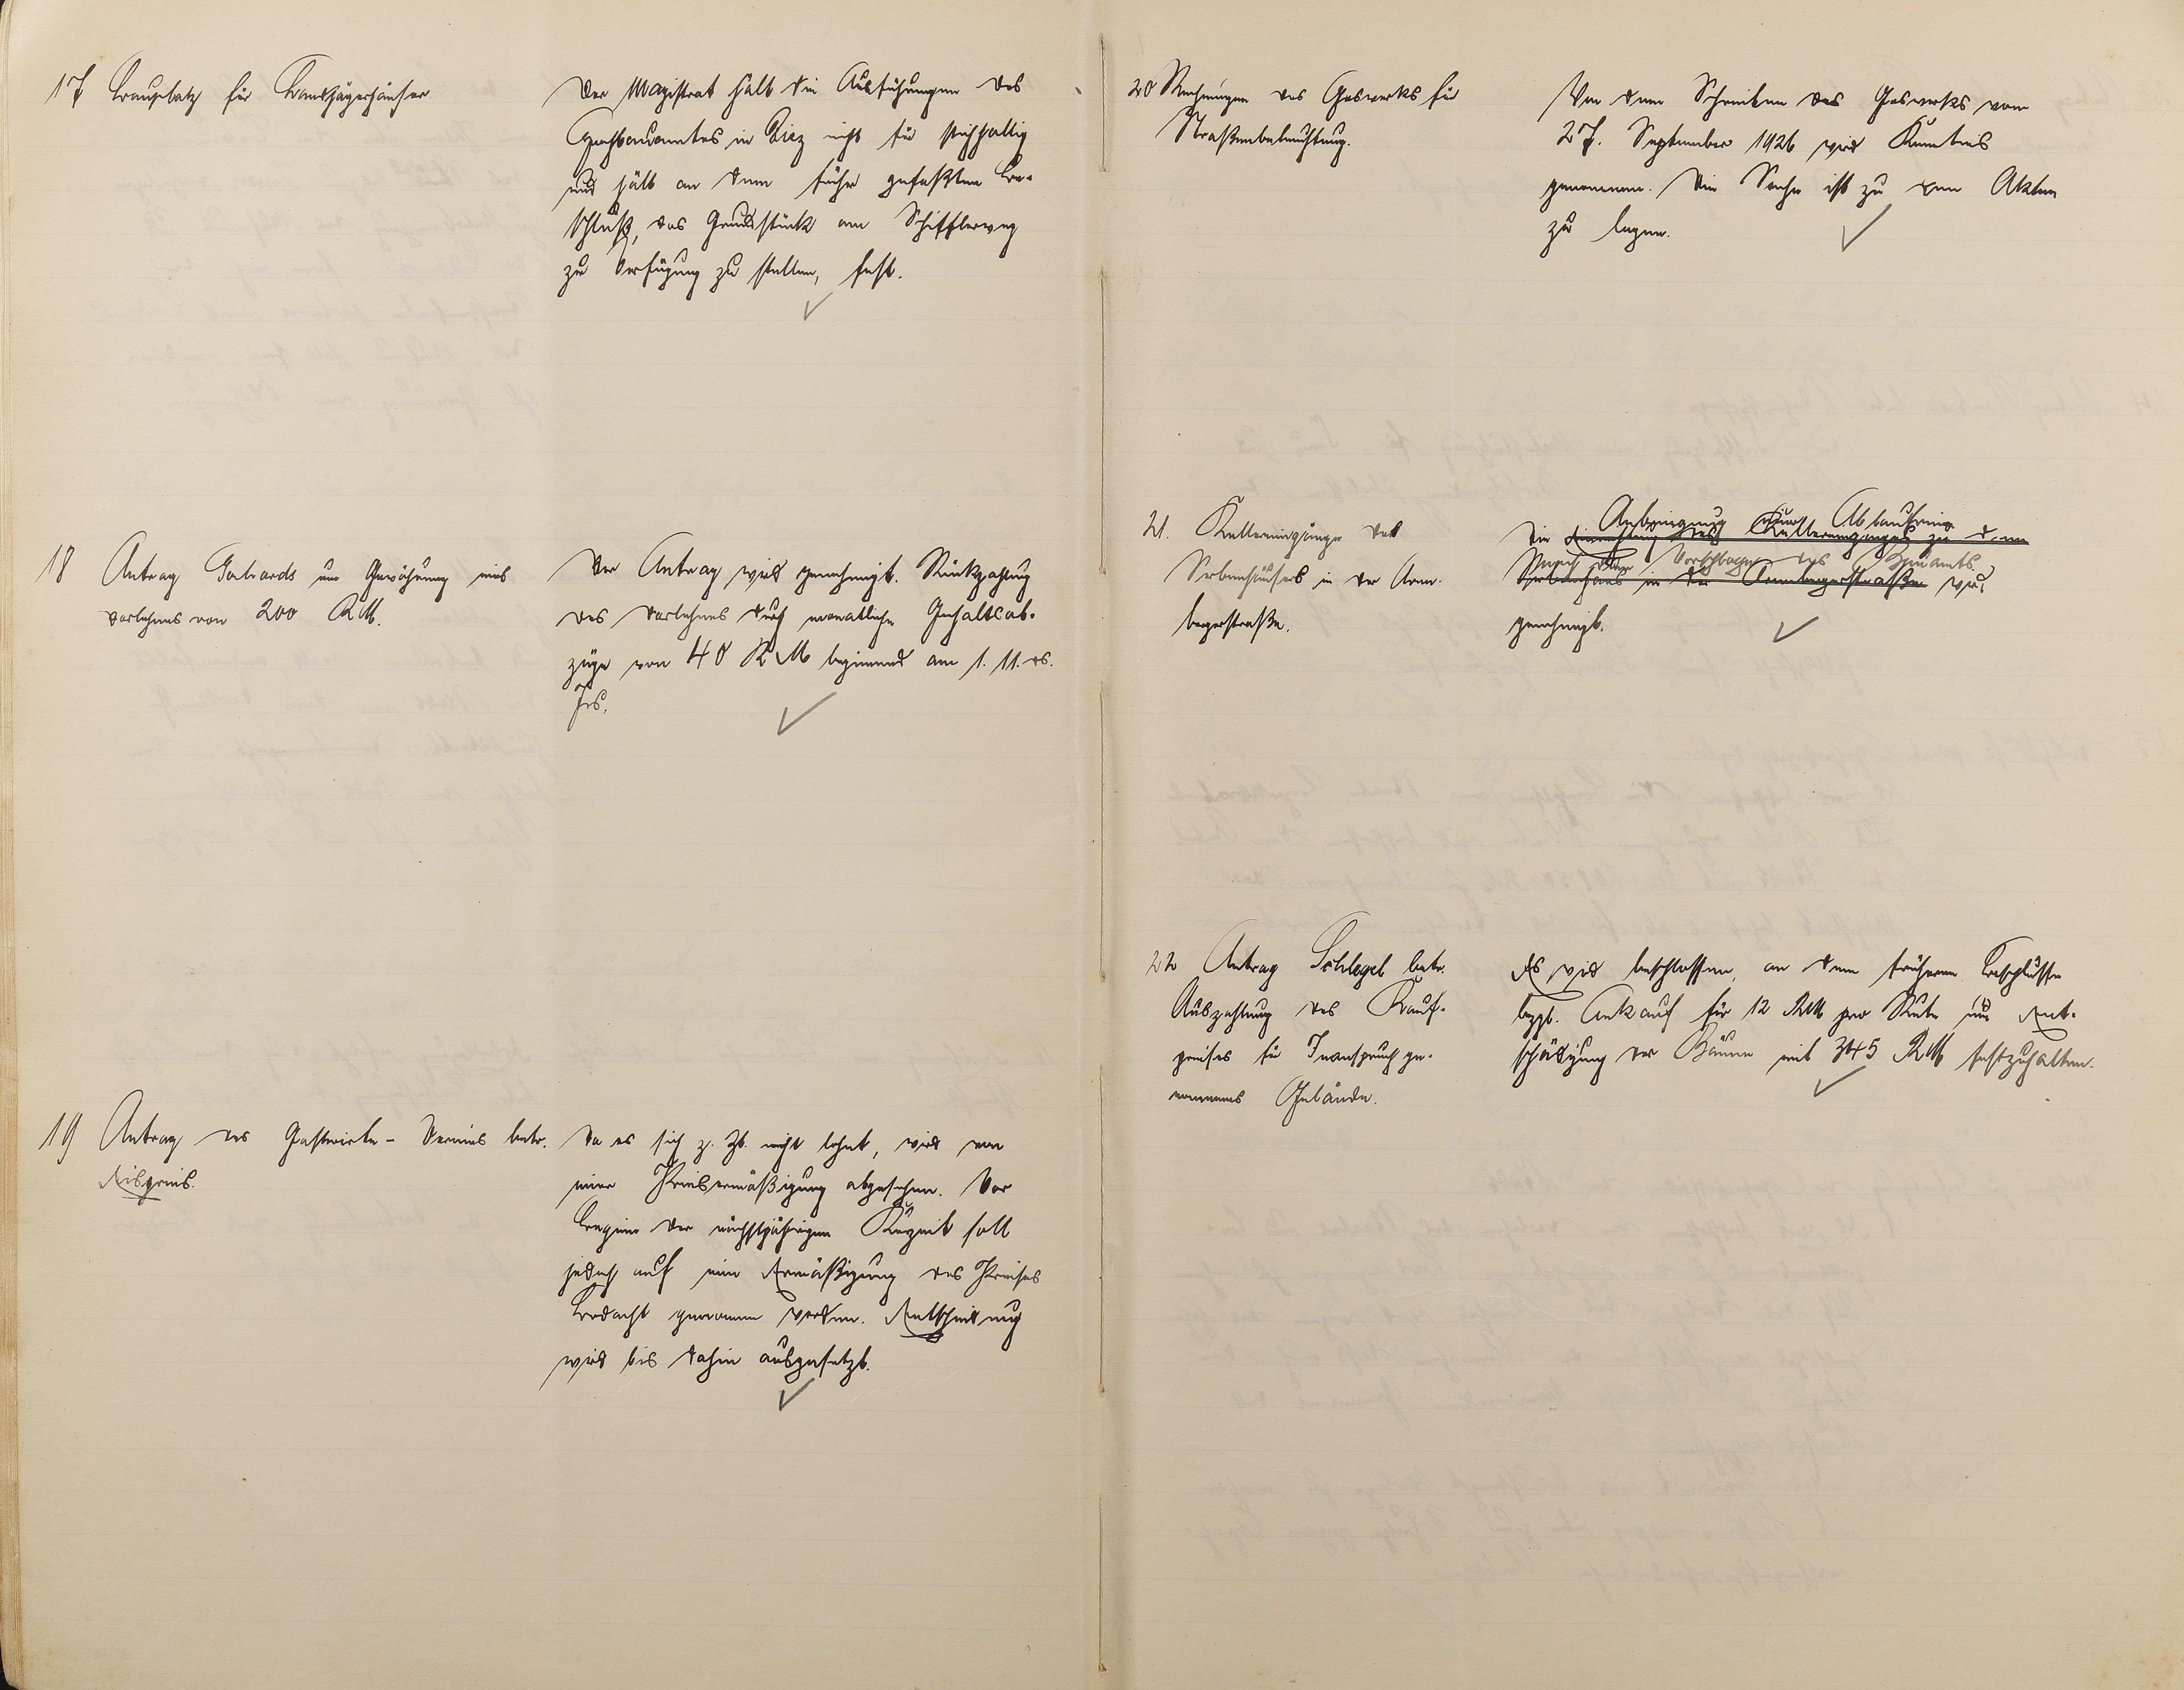 17 Bauplatz für Landjägerhäuser.
Der Magistrat hält die Ausführungen des
Hochbauamtes in Diez nicht für stichhaltig
und hält an dem früher gefaßten Be-
schluß, das Grundstück am Schifflerweg
zur Verfügung zu stellen, fest.
18 Antrag Gerhards um Gewährung eines
Darlehnes von 200 RM.
Der Antrag wird genehmigt. Rückzahlung
des Darlehnes durch monatliche Gehaltsab-
züge von 40 RM beginnend am 1. 11. ds.
Jrs.
19 Antrag des Gastwirte-Vereins betr.
Eispreis.
Da es sich z. Zt. nicht lohnt, wird von
einer Preisermäßigung abgesehen. Vor
Beginn der nächstjährigen Kurzeit soll
jedoch auf eine Ermäßigung des Preises
Bedacht genommen werden. Entscheidung
wird bis dahin ausgesetzt.
20 Rechnungen des Gaswerks für
Straßenbeleuchtung.
Von dem Schreiben des Gaswerks vom
27. September 1926 wird Kenntnis
genommen. Die Sache ist zu den Akten
zu legen.
21. Kellereingänge des
Siebenhäusers in der Arn-
bergerstraße.
Anbringung einer Ablaufrinne
Die Einrichtung des Kellereinganges zu dem
nach dem Vorschlage des Bauamts
in der wird
genehmigt.
22 Antrag Schlegel betr.
Auszahlung des Kauf-
preises für Inanspruch ge-
nommenes Gelände.
Es wird beschlossen, an dem früheren Beschlusse
bezgl. Ankauf für 12 RM pro Rute und Ent-
schädigung der Bäume mit 345 RM festzuhalten.